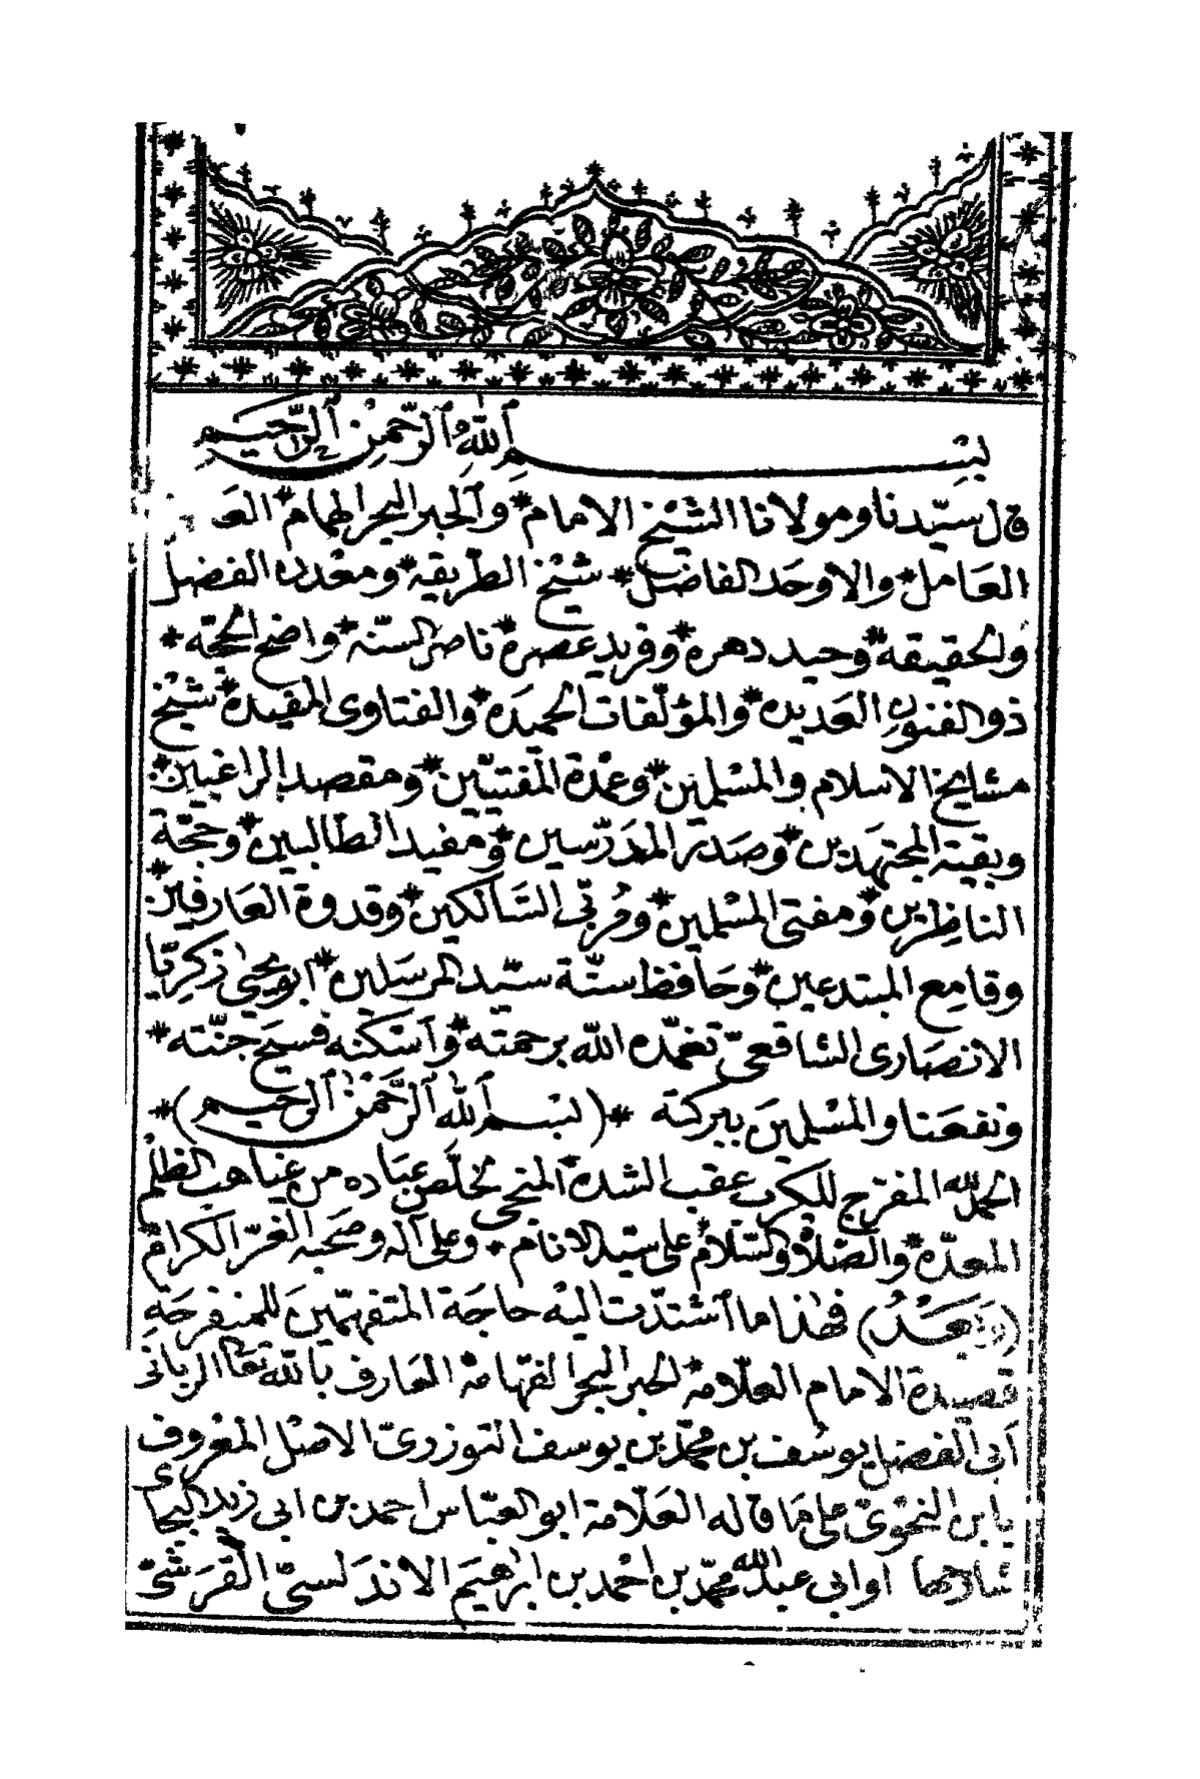 بسم الله الرحمن الرحيم
قال سيّدنا ومولانا الشيخ الامام * والحبر البحر الهمام *
العامل * والاوحد الفاضل * شيخ الطريقه * ومعدن الفضل
والحقيقة * وحيد دهره * وفريد عصره * ناصر السنّه * واضح الحجّه *
ذو الفنون العديده * والمؤلّفات الحميده * والفتاوى المفيدة * شيخ
مشايخ الاسلام والمسلمين * وعمدة المفتيّين * ومقصد الراغبين *
وبقية المجتهدين * وصدر المدرّسين * ومفيد الطالبين * وحجّة
الناظرين * ومفتى المسلمين * ومربّى السّالكين * وقدوة العارفين *
وقامع المبتدعين * وحافظ سنّة سيّد المرسلين * ابو يحيى زكريّا
الانصارى الشافعىّ تغمّده الله برحمته * وأسكنه فسيح جنّته *
ونفعنا والمسلمين ببركته * (بسم الله الرّحمن الرحيم) *
الحمد لله المفرّج للكرب عقب الشده * المنجى مخلّص عباده من غياهب الظلم
المعدّه * والصّلاة والسّلام على سيّد الانام * وعلى آله وصحبه الغرّ الكرام *
(وبعد) فهٰذا ما اشتدّت اليه حاجة المتفهّمين للمنفرجه
قصيدة الامام العلاّمة الحبر البحر الفهّامة * العارف بالله تعالى الربانى
أبى الفضل يوسف بن محمّد بن يوسف التوزرىّ الاصل المعروف
بابن النحوىّ على ما قاله العلاّمة ابو العبّاس احمد بن ابى زيد البجائى
شارحها او ابى عبد الله محمّد بن احمد بن ابراهيم الاندلسىّ القرشىّ